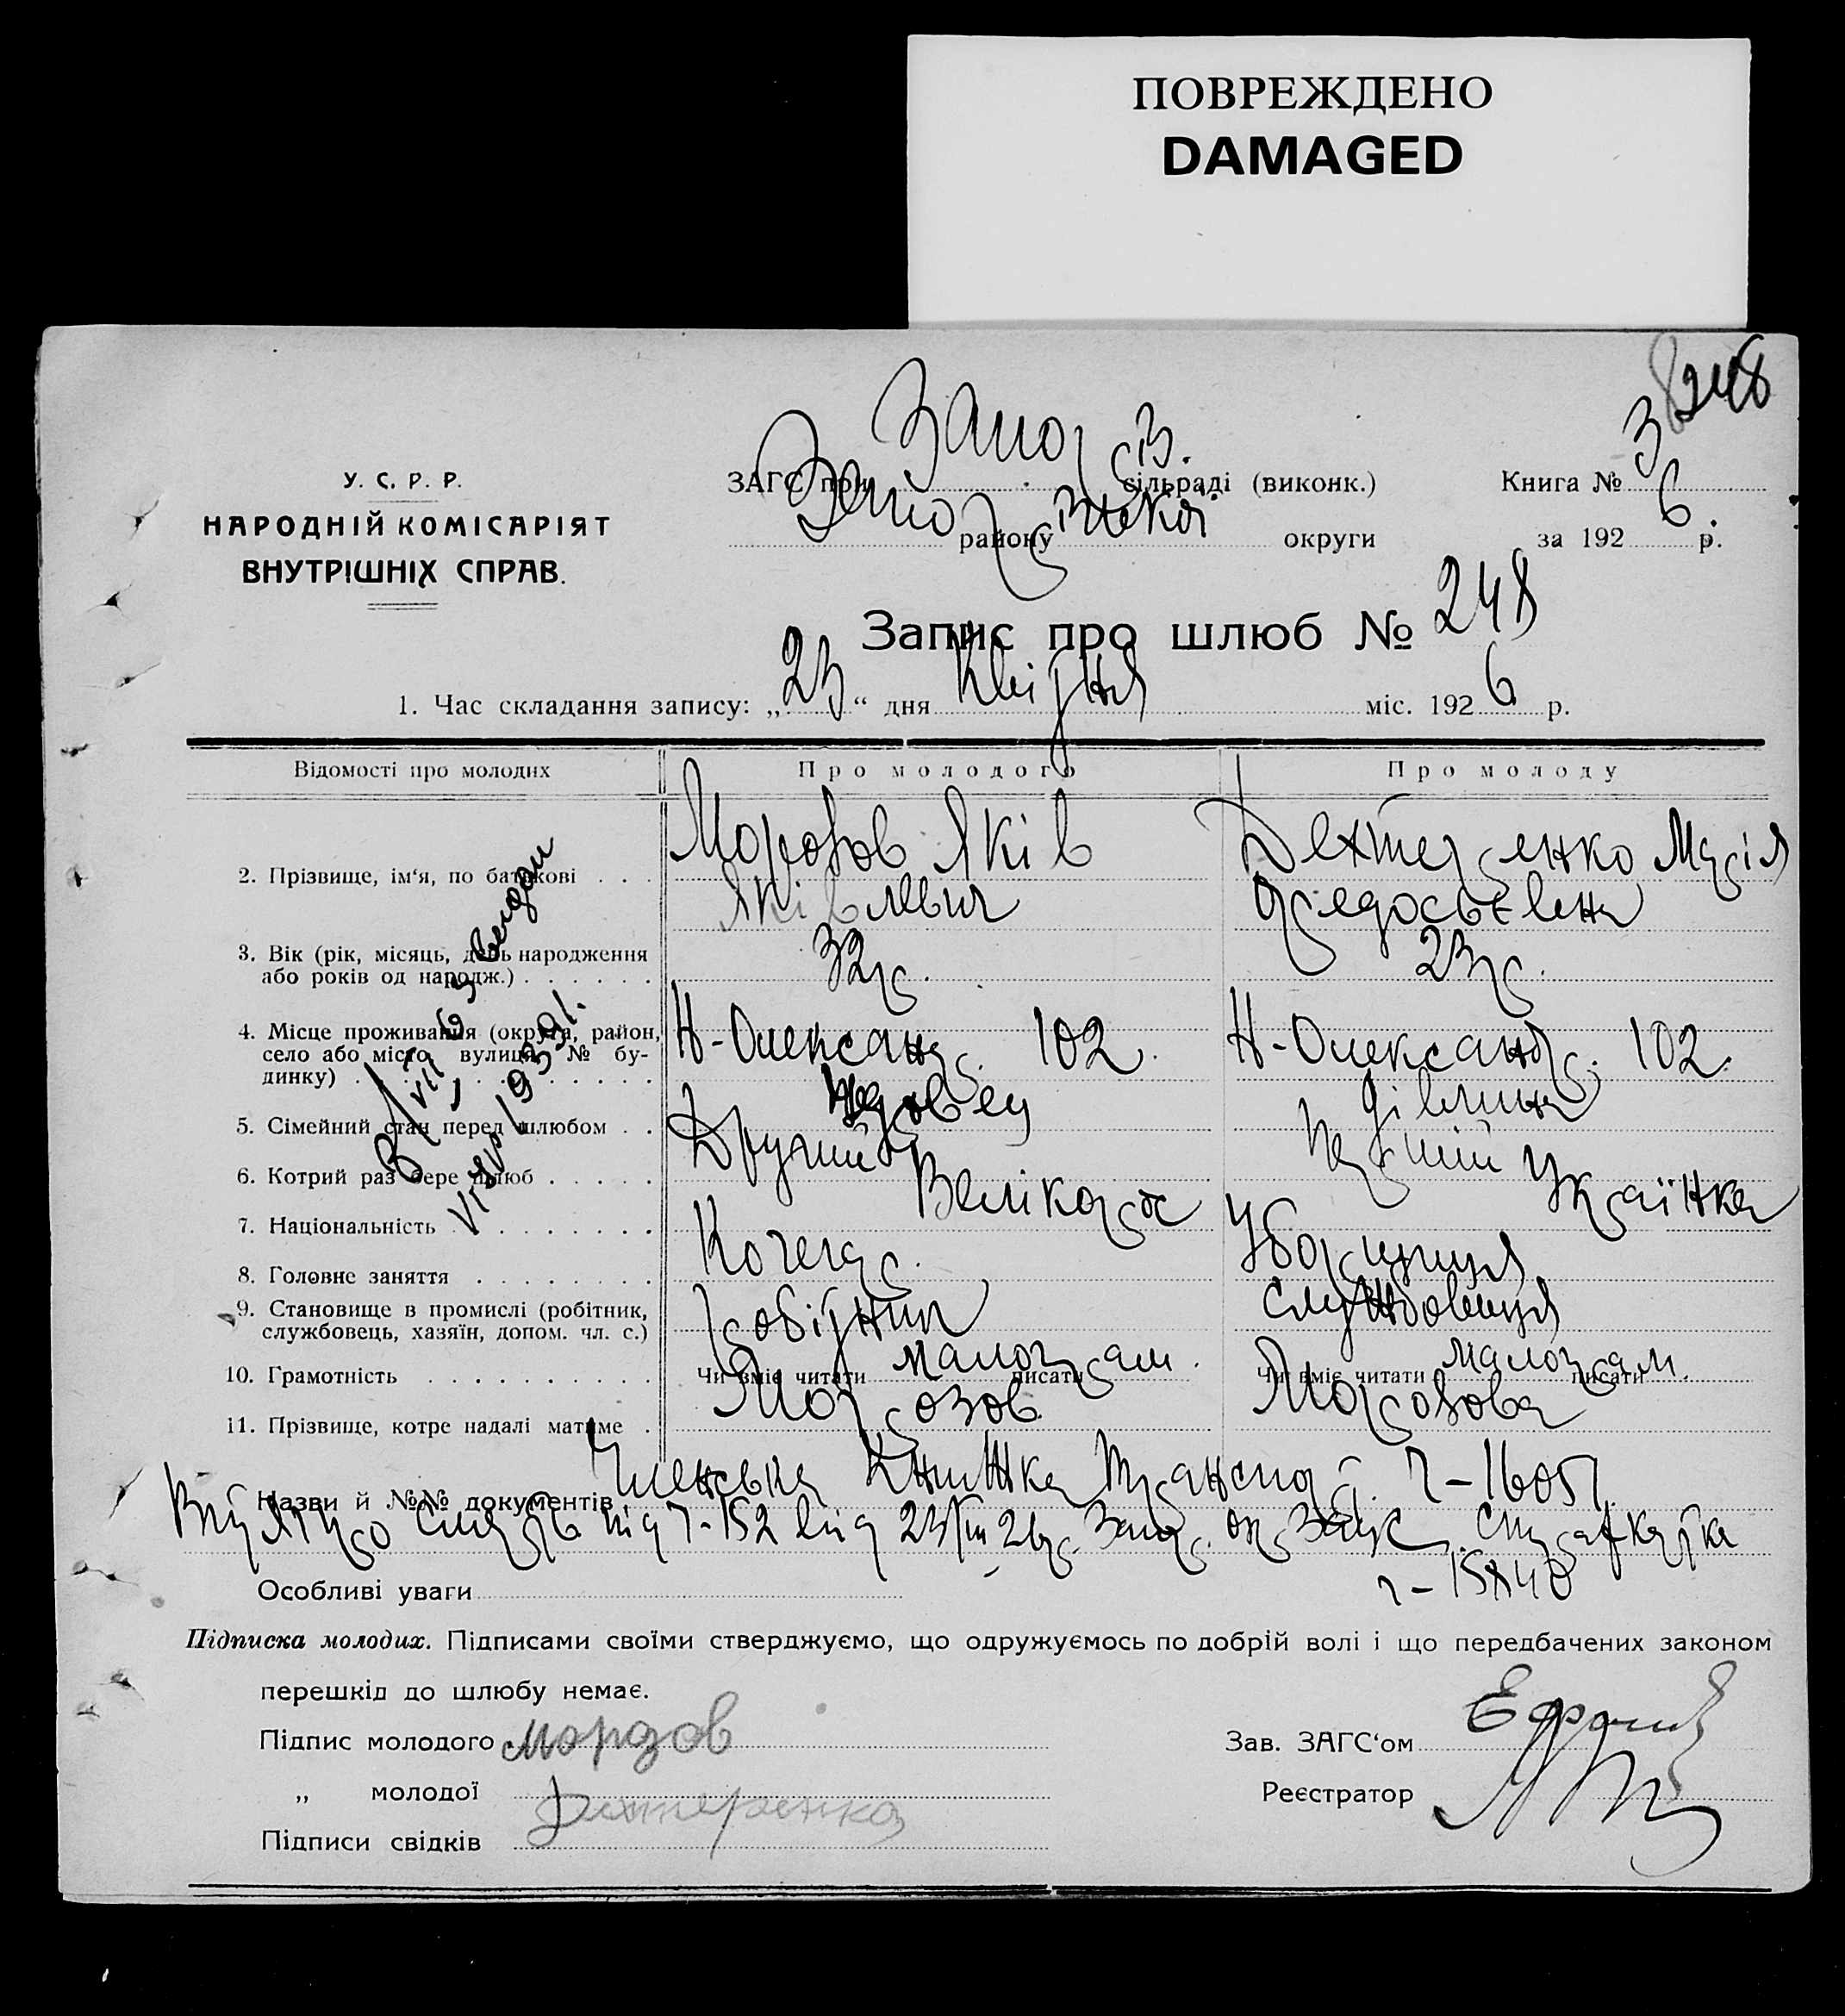 ПОВРЕЖДЕНО
DAMAGED
248
У. С. Р. Р.
НАРОДНІЙ КОМІСАРІЯТ
ВНУТРІШНІХ СПРАВ.
ЗАГС при Запорізь. сільраді (виконк.)
Книга № 3
району округи
за 192 6 р.
Запис про шлюб № 248
1. Час складання запису: „23“ дня Квітня міс. 192 6 р.
Відомості про молодих
Про молодого
Про молоду
2. Прізвище, ім'я, по батькові . . .
Морозов Яків
Яківлевич
Дехтеренко Марія
Федосьевна
3. Вік (рік, місяць, день народження
або років од народж.) . . . . . .
32 р.
23 р.
4. Місце проживання (округа, район,
село або місто, вулиця, № бу-
динку) . . . . . . . . . . . .
Н-Олександр. 102.
Н-Олександр. 102.
5. Сімейний стан перед шлюбом . .
Вдовец
Дівчина
6. Котрий раз бере шлюб . . . . .
Другий
Перший
7. Національність . . . . . . . .
Велікорос
Українка
8. Головне заняття . . . . . . . .
Кочегар.
Уборщиця
9. Становище в промислі (робітник,
службовець, хазяїн, допом. чл. с.)
робітник
службовиця
10. Грамотність . . . . . . . . . .
Чи вміє читати малограм. писати
Чи вміє читати малограм. писати
11. Прізвище, котре надалі матиме .
Морозов
Морозова
Назви й №№ документів Членська Книжка Транспор. ч-16051.
смерть під ч-152 від 23/III 26 р. Запор. ок. Загс. страхкартка
ч-15840
Особливі уваги
Підписка молодих. Підписами своїми стверджуємо, що одружуємось по добрій волі і що передбачених законом
перешкід до шлюбу немає.
Підпис молодого Морозов
„ молодої Дихтеренко
Підписи свідків
Зав. ЗАГС'ом
Реєстратор